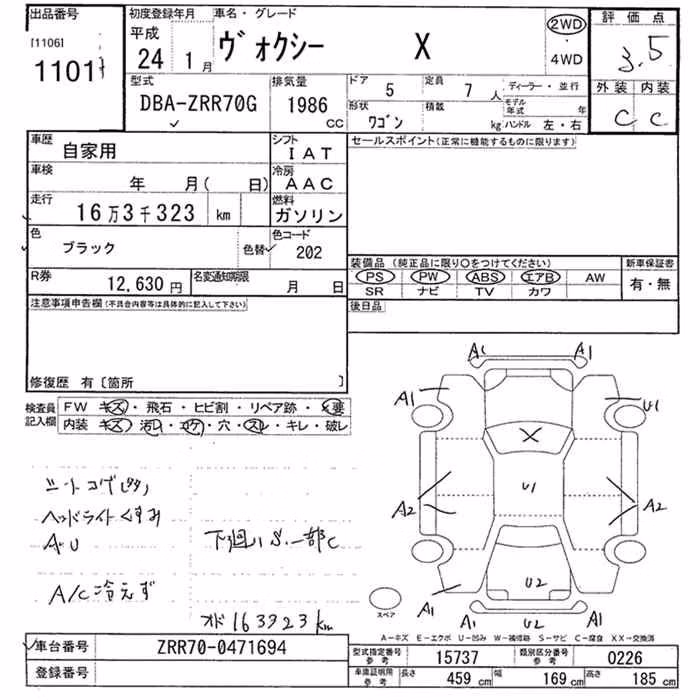 出品番号
[1106]
1101
初度登録年月
平成
24 1月
車名・グレード
ヴォクシー X
2WD
・
4WD
評価点
3.5
外装 内装
C C
型式
DBA-ZRR70G
排気量
1986 CC
ドア 5
定員 7 人
ディーラー・並行
形状 ワゴン
積載 kg
モデル年式 年
ハンドル 左・右
車歴 自家用
シフト IAT
車検 年 月( 日)
冷房 AAC
走行 16万3千323 km
燃料 ガソリン
色 ブラック 色替
色コード 202
R券 12,630円
名変通知期限 月 日
セールスポイント(正常に機能するものに限ります)
装備品 (純正品に限り○をつけてください)
PS PW ABS エアB AW
SR ナビ TV カワ
新車保証書
有・無
後日品
注意事項申告欄(不具合内容等は具体的に記入して下さい)
修復歴 有〔箇所 〕
検査員記入欄
FW キズ・飛石・ヒビ割・リペア跡・X要
内装 キズ・汚レ・コゲ・穴・スレ・キレ・破レ
ヘッドライトくすみ
AU
A/C冷えず
下廻りS.一部C
オド163323km
A1 A1
A1 U1
X
U1
A2 A2
U2
A1 A1
U2
スペア
A-キズ E-エクボ U-凹み W-補修跡 S-サビ C-腐食 XX-交換済
車台番号 ZRR70-0471694
登録番号
型式指定番号参考 15737
類別区分番号参考 0226
車庫証明用参考 長さ 459 cm 幅 169 cm 高さ 185 cm